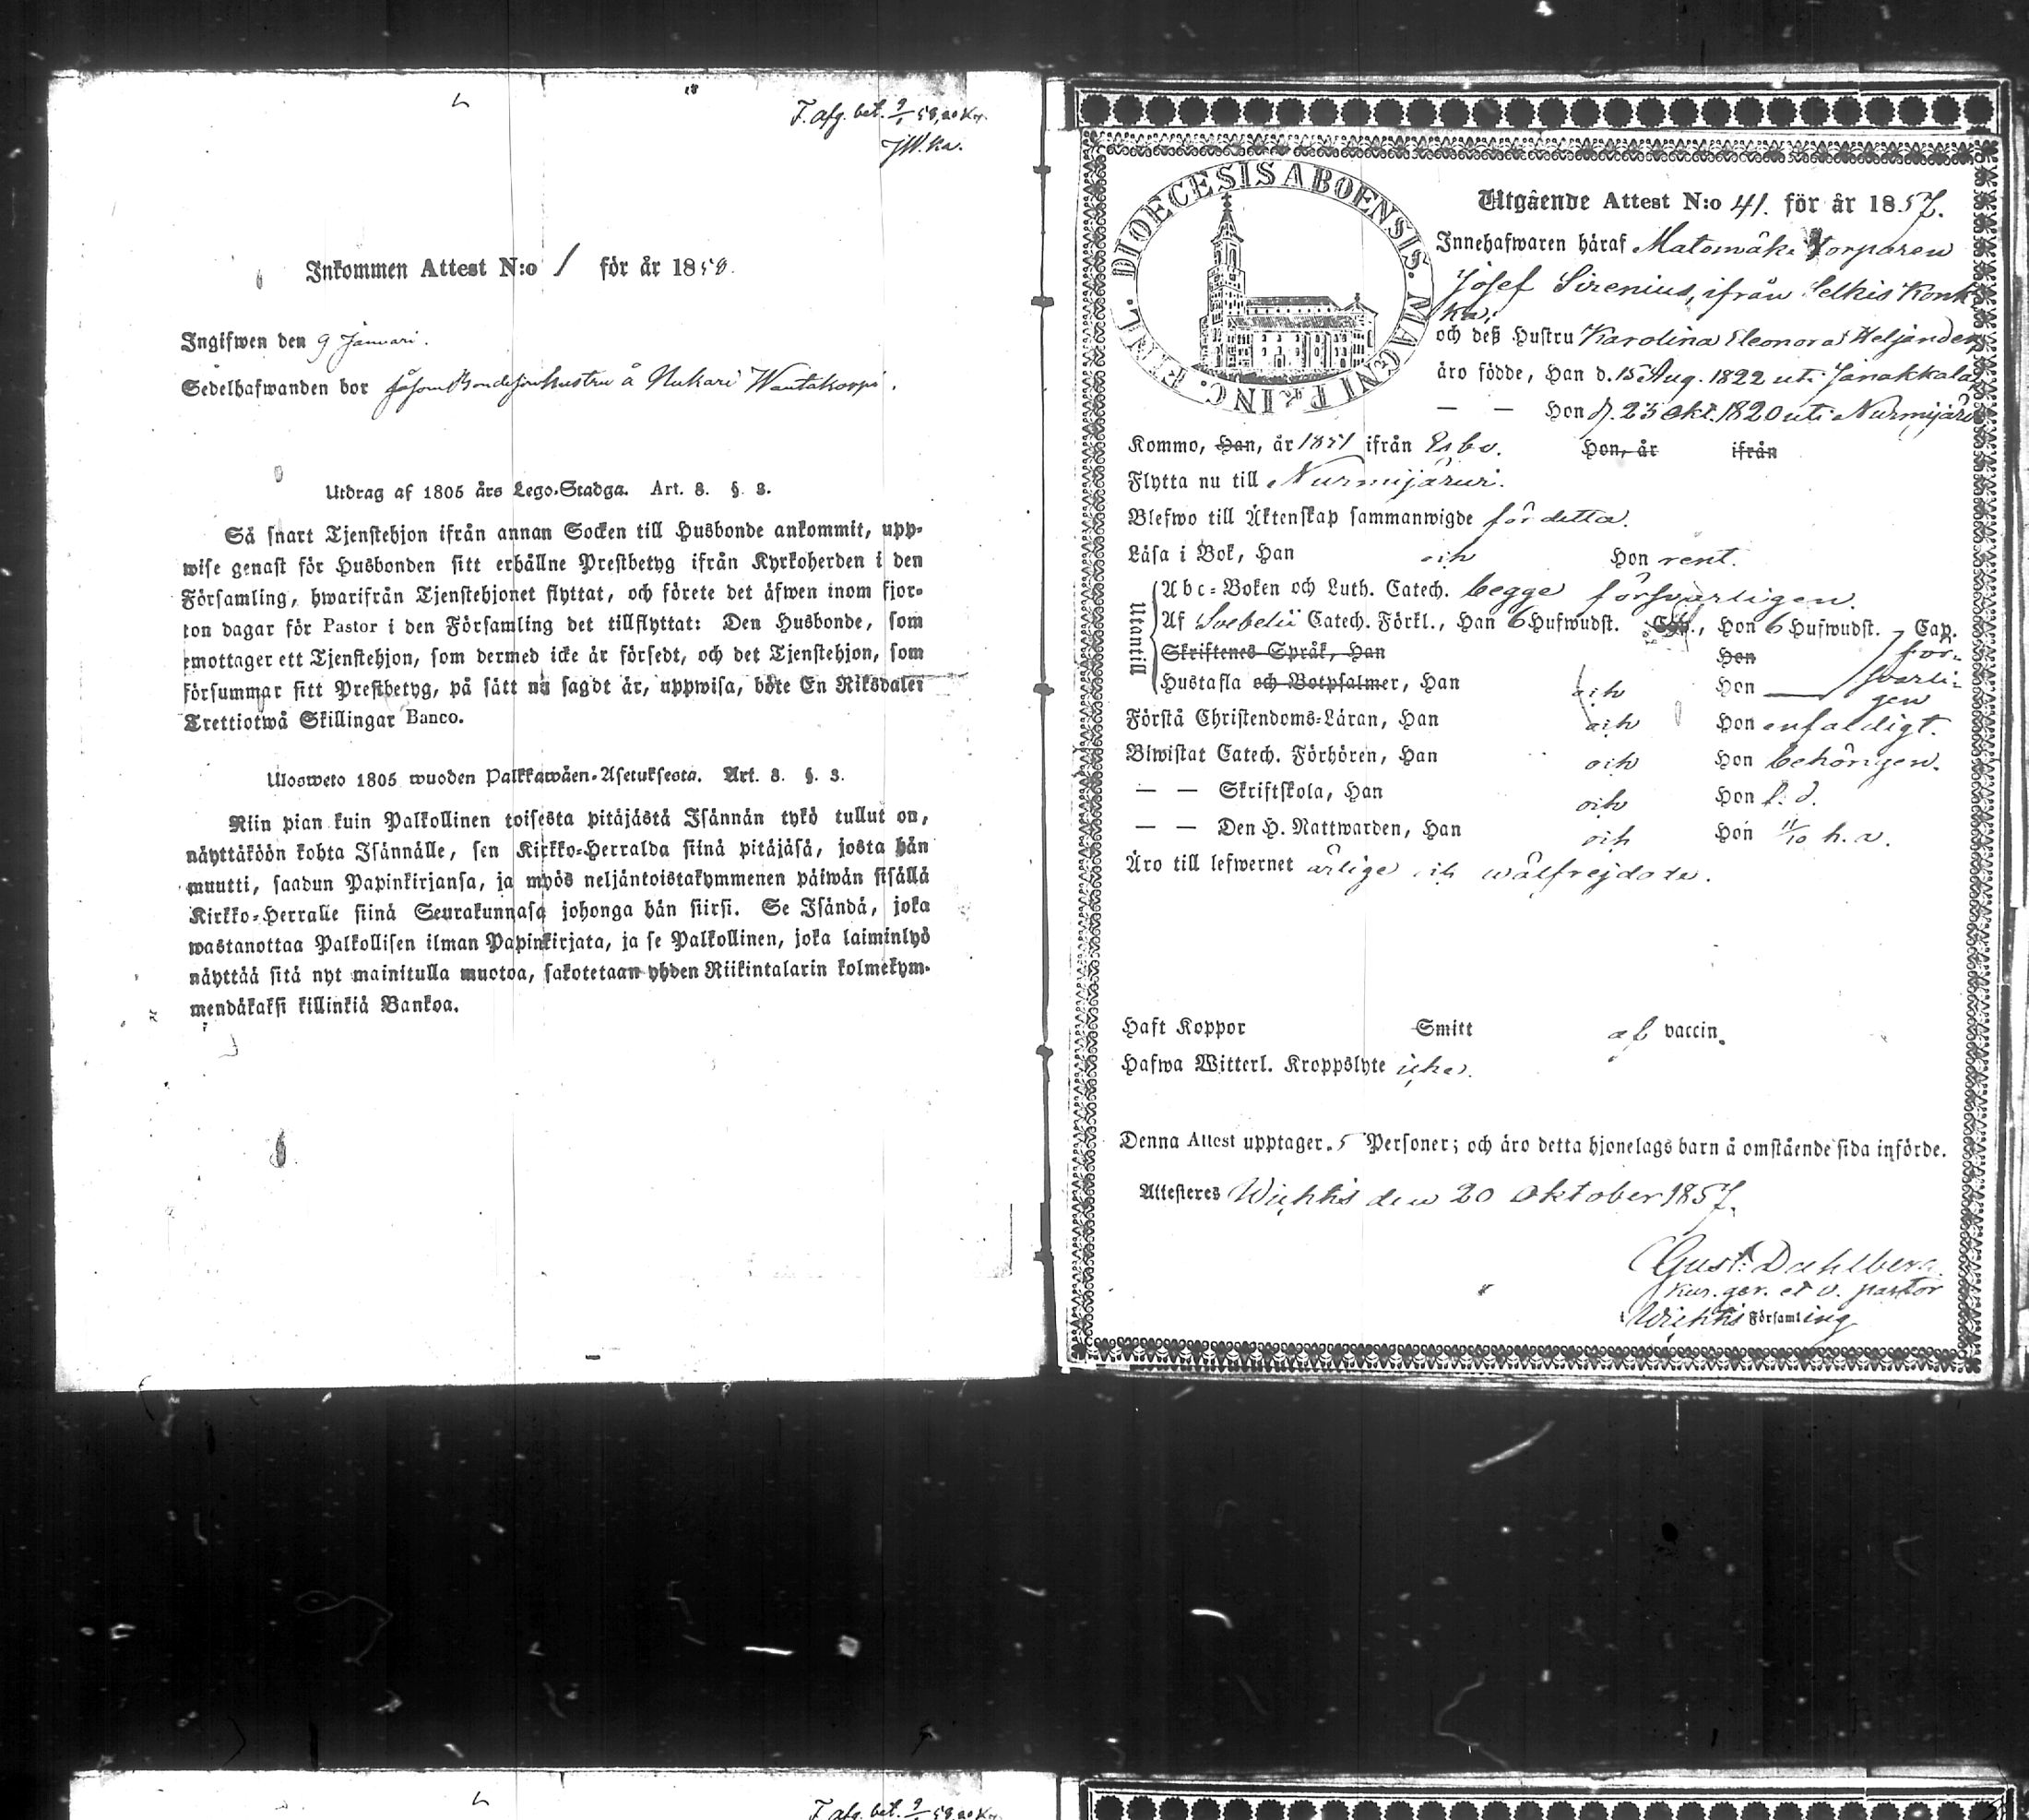 F. afg. bet. 9/1 58, 20 Kr.
Inkommen Attest N:o 1 för år 1858.
Ingifwen den 9 Januari.
Sedelhafwanden bor såsom Bondesonhustru å Nukari Wantakorpi.
Utdrag af 1805 års Lego-Stadga. Art. 8. §. 3.
Så snart Tjenstehjon ifrån annan Socken till Husbonde ankommit, upp-
wise genast för Husbonden sitt erhållne Prestbetyg ifrån Kyrkoherden i den
Församling, hwarifrån Tjenstehjonet flyttat, och förete det äfwen inom fjor-
ton dagar för Pastor i den Församling det tillflyttat: Den Husbonde, som
emottager ett Tjenstehjon, som dermed icke är försedt, och det Tjenstehjon, som
försummar sitt Prestbetyg, på sätt nu sagdt är, uppwisa, böte En Riksdaler
Trettiotwå Skillingar Banco.
Ulosweto 1805 wuoden Palkkawäen-Asetuksesta. Art. 8. §. 3.
Niin pian kuin Palkollinen toisesta pitäjästä Isännän tykö tullut on,
näyttäköön kohta Isännälle, sen Kirkko-Herralda siinä pitäjäsä, josta hän
muutti, saadun Papinkirjansa, ja myös neljäntoistakymmenen päiwän sisällä
Kirkko-Herralle siinä Seurakunnasa johonga hän siirsi. Se Isändä, joka
wastanottaa Palkollisen ilman Papinkirjata, ja se Palkollinen, joka laiminlyö
näyttää sitä nyt mainitulla muotoa, sakotetaan yhden Riikintalarin kolmekym-
mendäkaksi killinkiä Bankoa.
DIOECESIS ABOENSIS. MAGNI PRINC. FINL.
Utgående Attest N:o 41. för år 1857.
Innehafwaren häraf Matomäki torparen
Josef Sirenius, ifrån Selkis Konk-
ka,
och deß Hustru Karolina Eleonora Heljander,
äro födde, Han d. 15 Aug. 1822 uti Janakkala,
— — Hon d. 23 Okt. 1820 uti Nurmijärvi
Kommo, Han, år 1851 ifrån Esbo. Hon, år ifrån
Flytta nu till Nurmijärvi.
Blefwo till Äktenskap sammanwigde för detta.
Läsa i Bok, Han och Hon rent.
Utantill
Abc-Boken och Luth. Catech. begge försvarligen.
Af Svebelii Catech. Förkl., Han 6 Hufwudst. Cap., Hon 6 Hufwudst. Cap.
Skriftenes Språk, Han Hon för-
Hustafla och Botpsalmer, Han och Hon — svarli-
gen
Förstå Christendoms-Läran, Han och Hon enfaldigt.
Biwistat Catech. Förhören, Han och Hon behörigen.
— — Skriftskola, Han och Hon f. d.
— — Den H. Nattwarden, Han och Hon 11/10 h. a.
Äro till lefwernet ärlige och wälfrejdade.
Haft Koppor Smitt af vaccin.
Hafwa Witterl. Kroppslyte icke.
Denna Attest upptager 5 Personer; och äro detta hjonelags barn å omstående sida införde.
Attesteres Wichtis den 20 Oktober 1857.
Gust. Dahlberg
kur. ger. et v. pastor
i Wichtis Församling
F. afg. bet. 9/1 58, 20 Kr.